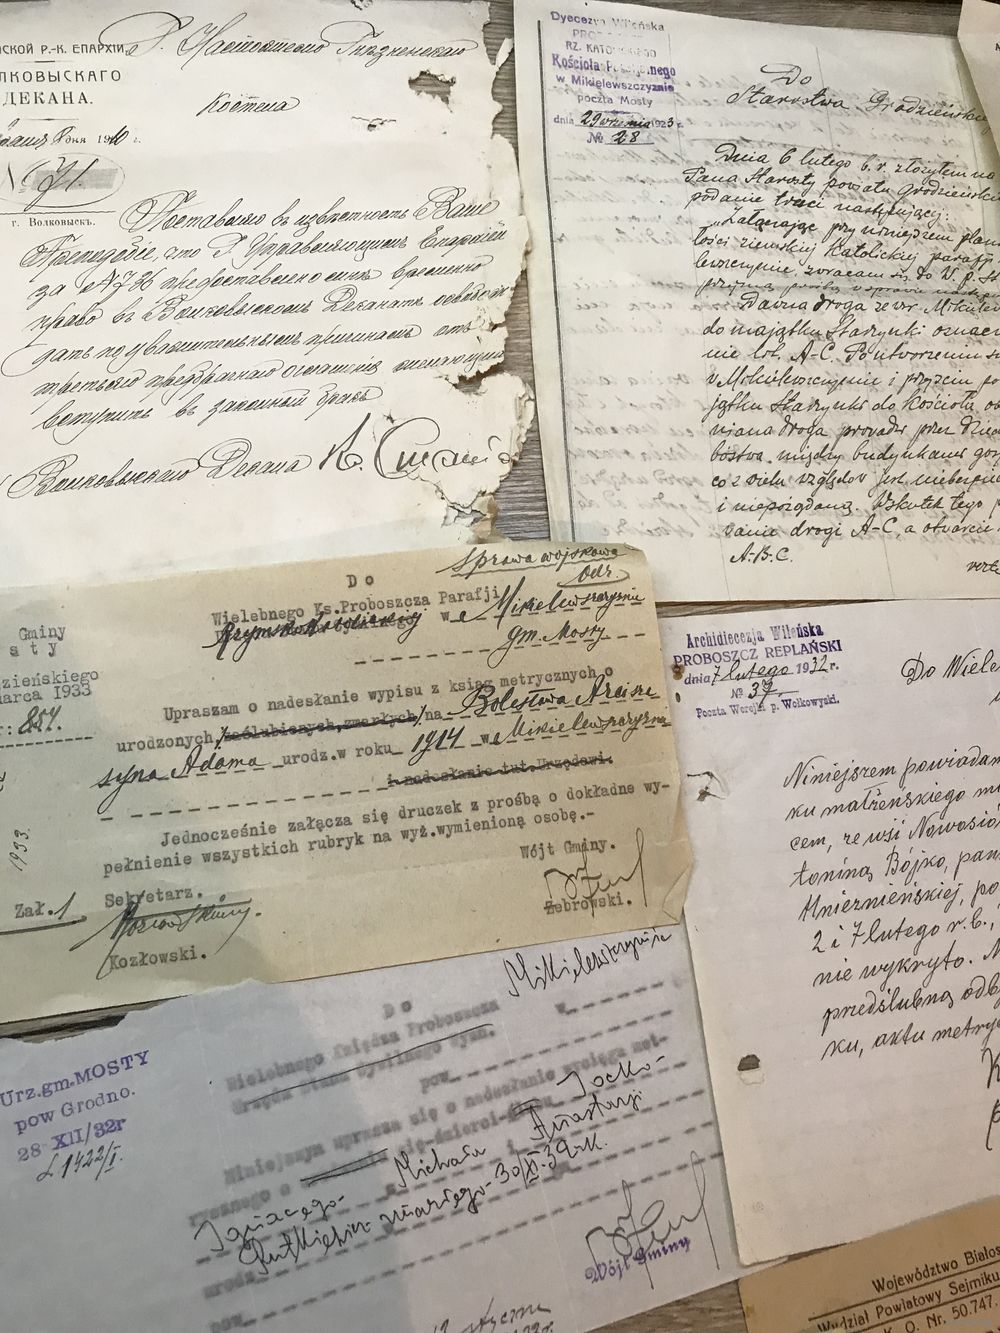 СКОЙ Р.-К. ЕПАРХІИ
ОЛКОВЫСКАГО
ДЕКАНА.
дня 1910 г.
№ 71
г. Волковыскъ.
Г. Настоятелю Гнезненскаго
Костела
Поставляю въ извѣстность Ваше
Преподобіе, что Г. Управляющимъ Епархіей
за № 736 предоставлено мнѣ временно
право въ Волковыскомъ Деканатѣ освобож
дать по уважительнымъ причинамъ отъ
третьяго предбрачнаго оглашенія желающихъ
вступить въ законный бракъ
Волковыскаго Декана
Dyecezya Wileńska
RZ. KATOLICKIEGO
Kościoła Parafjalnego
w Mikielewszczyznie
poczta Mosty
dnia 29 września 1923 r.
№ 28
Do
Starostwa Grodzieńskie
Dnia 6 lutego b. r. złożyłem na
Pana Starosty powiatu grodzieńsk
podanie treści następującej:
"Załączając przy niniejszem plan
łości ziemskiej Katolickiej parafji
lewszczyznie, zwracam się do W. P. St
Dawna droga ze wsi Mikiele
do majątku Starzynki oznac
nie lit. A-C. Po utworzeniu
w Mikielewszczyznie i przyjściu
jątku Starzynki do Kościoła
niana droga prowadzi przez
bostwa między budynkami gos
co z wielu względów jest niebezpie
i niepożądaną. Wskutek tego
canie drogi A-C, a otwarcie
A-B-C.
verte
sprawa wojskowa
odr.
Do
Wielebnego Ks.Proboszcza Parafji
Rzymsko-Katolickiej w Mikielewszczyznie
gm. Mosty
Gminy
sty
zieńskiego
arca 1933
r: 851.
Upraszam o nadesłanie wypisu z ksiąg metrycznych o
urodzonych /zaślubionych,zmarłych/ na Bolesława Arcisze
syna Adama urodz.w roku 1914 w Mikielewszczyznie
i nadesłanie tut.Urzędowi.
Jednocześnie załącza się druczek z prośbą o dokładne wy-
pełnienie wszystkich rubryk na wyż.wymienioną osobę.-
1933.
Zał. 1
Sekretarz.
Kozłowski.
Wójt Gminy.
Żebrowski.
Archidiecezja Wileńska
PROBOSZCZ REPLAŃSKI
dnia 7 lutego 1932 r.
№ 37
Poczta Werejki p. Wołkowyski.
Do Wiele
Niniejszem powiadam
ku małżeńskiego mi
cem, ze wsi Nowosió
toniną Bójko, pan
Hniezieńskiej, po
2 i 7 lutego r. b.,
nie wykryto.
przedślubną odb
ku, aktu metry
Urz.gm.MOSTY
pow Grodno.
28 XII/32r
L 1422/I.
Mikielewszczyźnie
Do
Wielebnego Księdza Proboszcza
Urzędu Stanu Cywilnego Wyzn.
w
pow.
Niniejszym uprasza się o nadesłanie wyciągu met-
rycznego o
się-śmierci-
Ignacego Michała Anastazji
Rutkiewicz zmarłego 30/XI-32 r.
urodz.
pow.
Wójt Gminy
Województwo Białos
Wydział Powiatowy Sejmiku
K. O. Nr. 50.747.